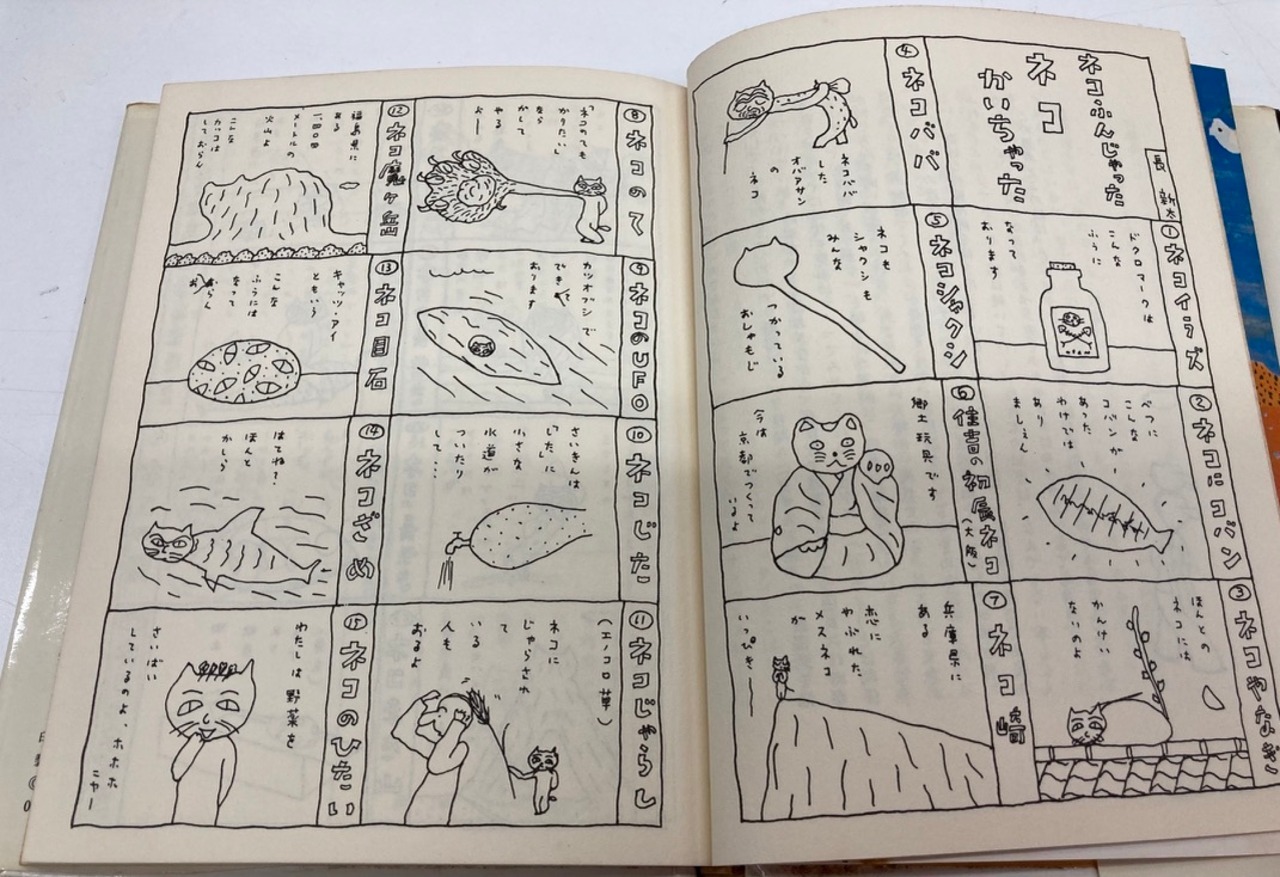 ネコふんじゃった
ネコ
かいちゃった
長 新太
①ネコイラズ
ドクロマークは
こんな
ふうに
なって
おります
②ネコにコバン
べつに
こんな
コバンが
あった
わけでは
あり
ましぇん
③ネコやなぎ
ほんとの
ネコには
かんけい
ないのよ
④ネコババ
ネコババ
した
オバアサン
の
ネコ
⑤ネコシャクシ
ネコも
シャクシも
みんな
つかっている
おしゃもじ
⑥住吉の初辰ネコ
(大阪)
郷土玩具です
今は
京都でつくって
いるよ
⑦ネコ崎
兵庫県に
ある
恋に
やぶれた
メスネコ
が
いっぴきー
⑧ネコのて
「ネコのても
かりたい」
なら
かして
やる
おー
⑨ネコのUFO
カツオブシで
できて
おります
⑩ネコじた
さいきんは
「した」に
小さな
水道が
ついたり
して…
⑪ネコじゃらし
(エノコロ草)
ネコに
じゃらされ
て
いる
人も
おるよ
⑫ネコ魔ヶ岳
福島県に
ある
メートルの
火山よ
こんな
カッコは
しておらん
⑬ネコ目石
キャッツ・アイ
ともいう
こんな
ふうには
なって
おらん
⑭ネコざめ
はてね?
ほんと
かしら
⑮ネコのひたい
わたしは 野菜を
さいばい
しているのよ、ホホホ
ニャー